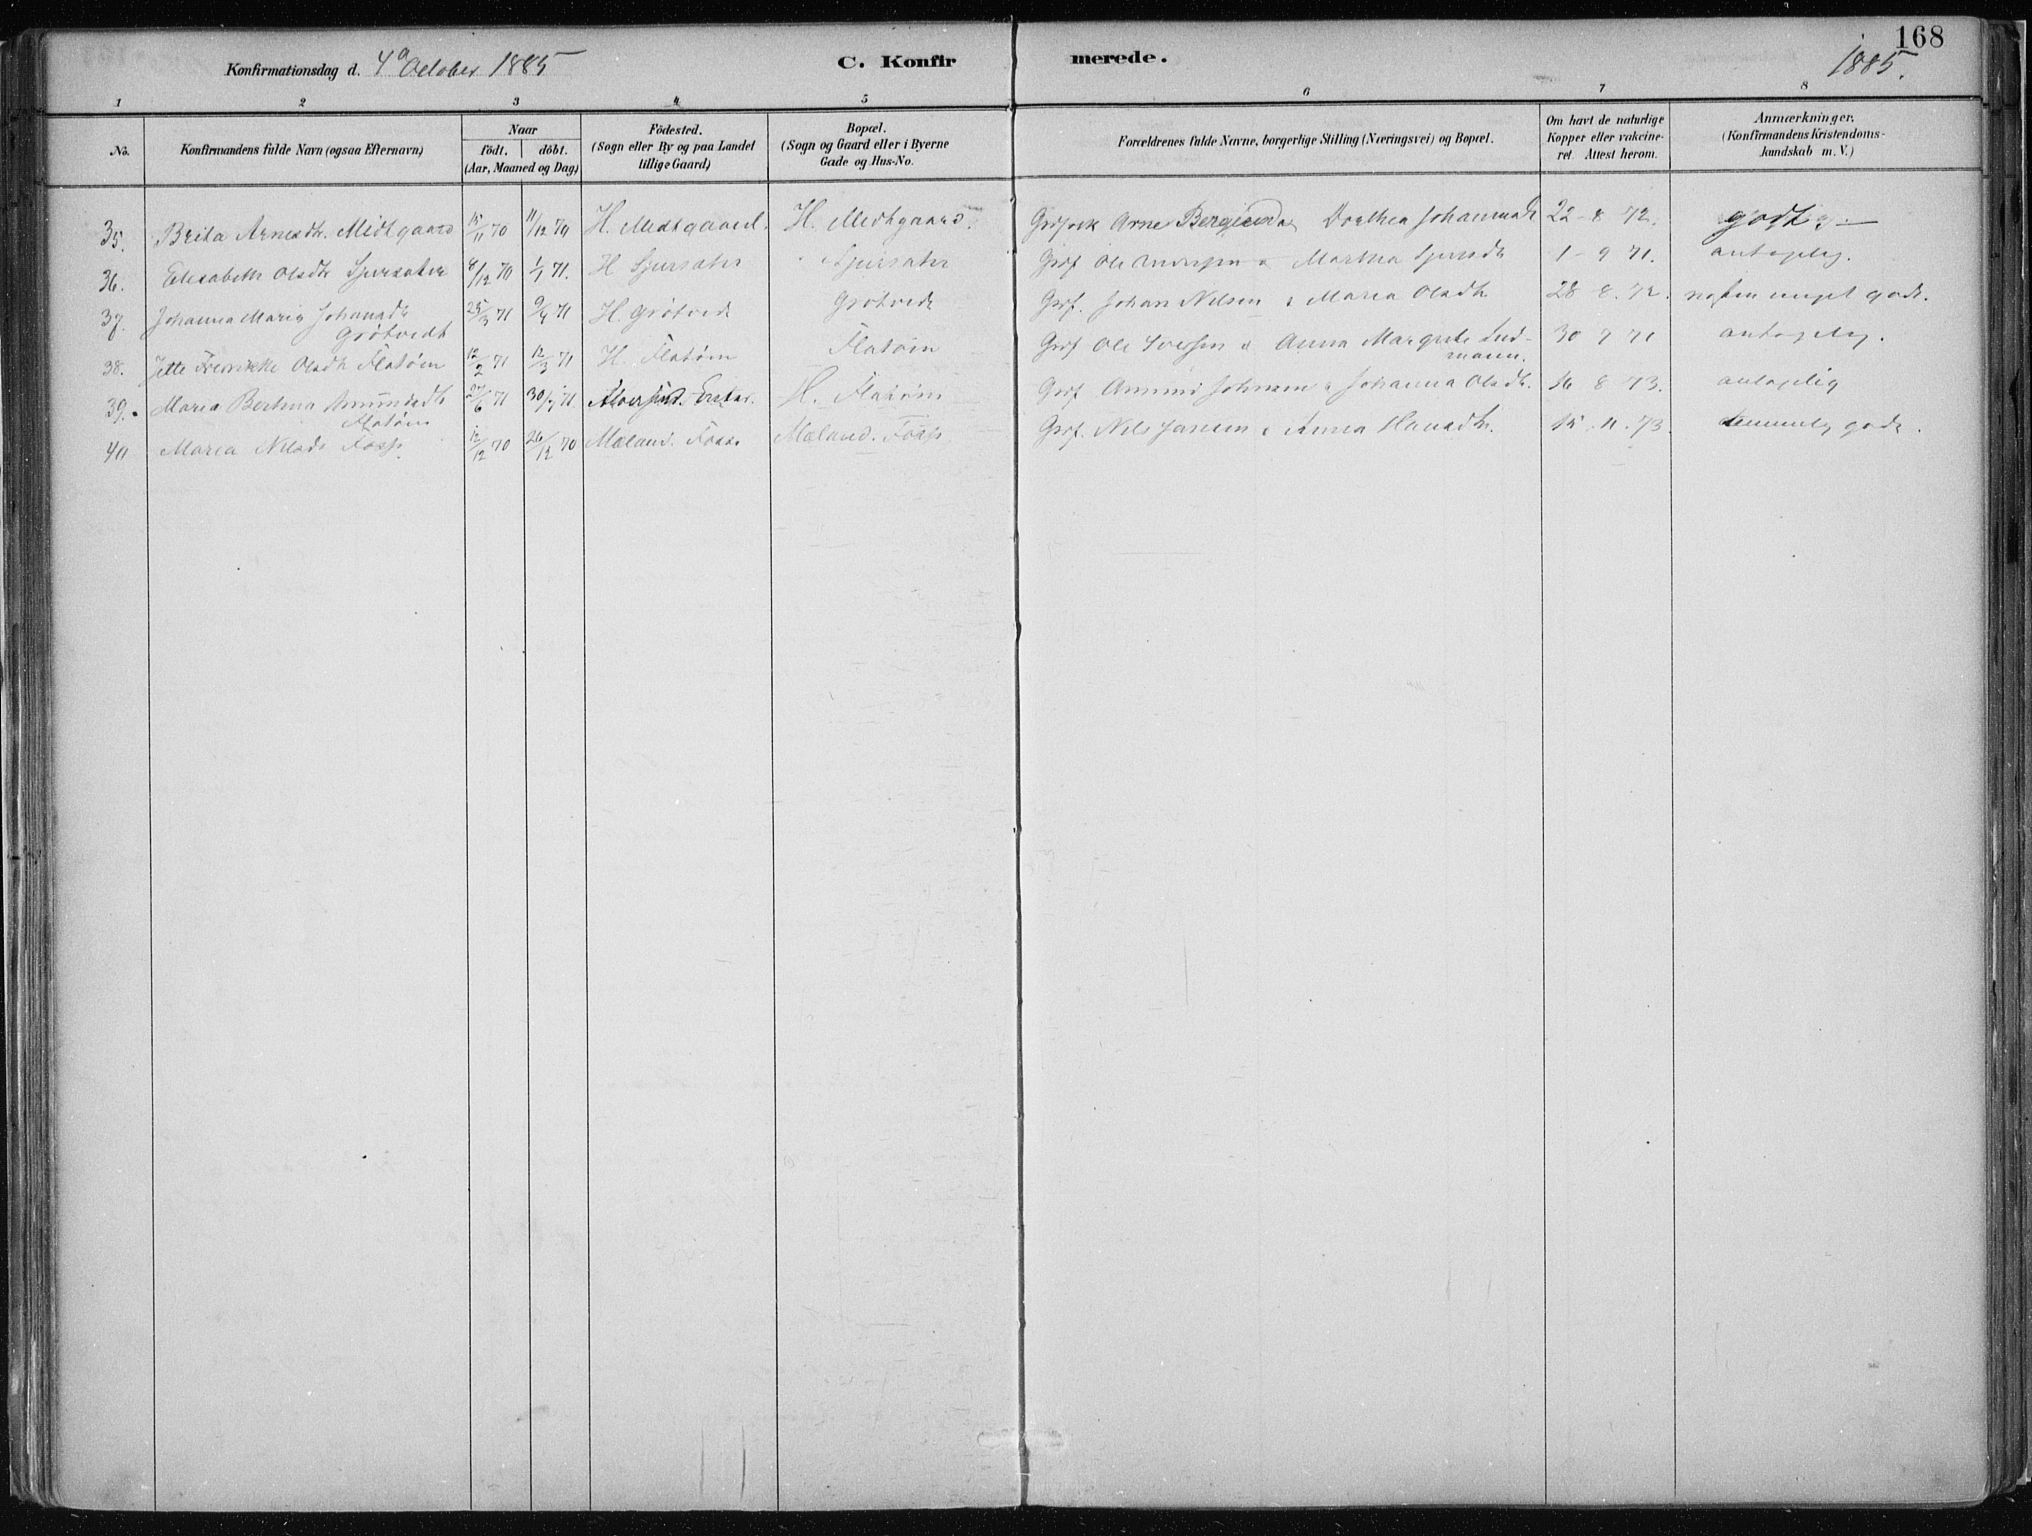 168
Konfirmationsdag d. 4de October 1885
C. Konfir merede.
1885.
1 2 3 4 5 6 7 8
No.
Konfirmandens fulde Navn (ogsaa Efternavn)
Naar
födt. döbt.
(Aar, Maaned og Dag)
Födested.
(Sogn eller By og paa Landet
tillige Gaard)
Bopæl.
(Sogn og Gaard eller i Byerne
Gade og Hus-No.
Forældrenes fulde Navne, borgerlige Stilling (Næringsvei) og Bopæl.
Om havt de naturlige
Kopper eller vakcine-
ret Attest herom.
Anmærkninger,
(Konfirmandens Kristendoms-
kundskab m. V.)
35. Brita Arnesdtr. Midtgaard 15/11 70 11/12 70 H. Midtgaard. H. Midtgaard. Arne Dorthea Johannsdt 22 - 8 72. godt
36. Elisabeth Olsdtr 8/12 70 1/1 71. H 1 - 9 71. antagelig.
37. Johanna Maria Johansdtr 25/3 71 9/4 71 H. Grötvedt Grötvedt Grdf. Johan Nilsen & Maria Olsdtr 28 8. 72. næsten meget godt.
Grötvedt
38. Jette Fredrikke Olsdtr Flatøen 12/2 71 12/3 71 H. Flatøen Flatøen Grdf Ole Iversen & Anna Margrete Lud- 30 7 71 antagelig.
mann.
39. Maria Bertina Amundsdtr 27/6 71 30/7 71 Alversund. H. Flatøen Grdf Amund Johnsen & Johanna Olsdtr. 16 8 73. antagelig
Flatøen
40 Maria Nilsdt Foss. 12/12 70 26/12 70 Mæland. Foss. Mæland. Foss Grdf. Nils Jansen & Anna Hansdtr. 15. 11. 73. temmelig godt.